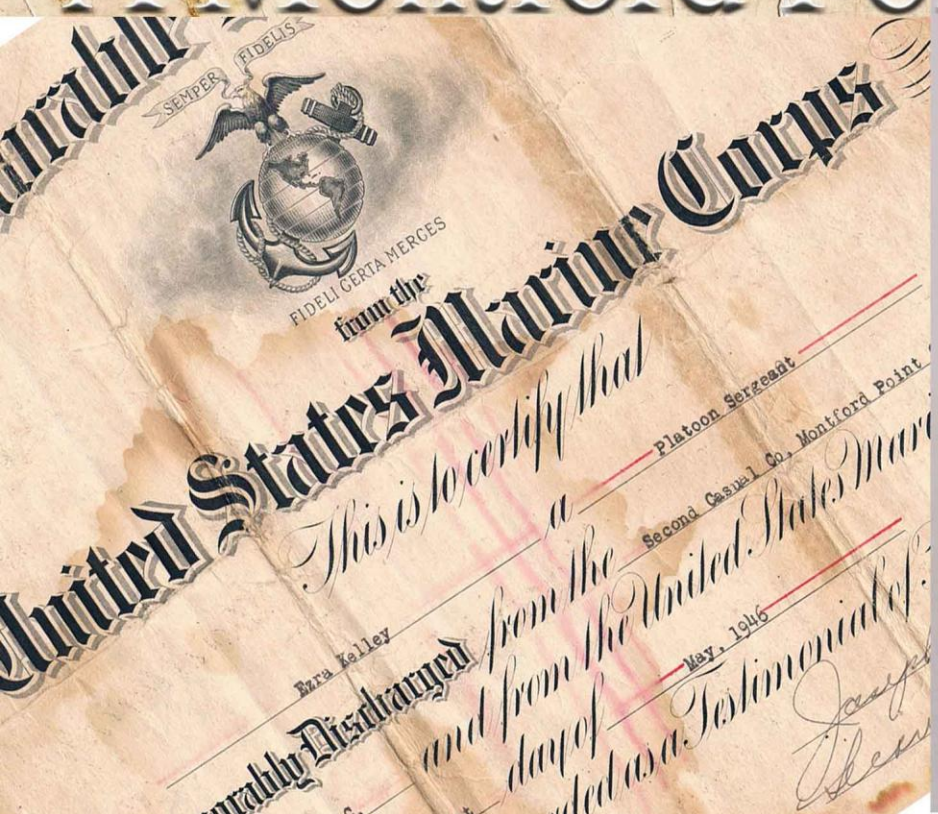 Montford Po
orable
SEMPER FIDELIS
FIDELI CERTA MERCES
from the
United States Marine Corps
This is to certify that
Ezra Kelley a Platoon Sergeant
orably Discharged from the Second Casual Co, Montford Point
and from the United States Mari
day of May, 1946
ded as a Testimonial of